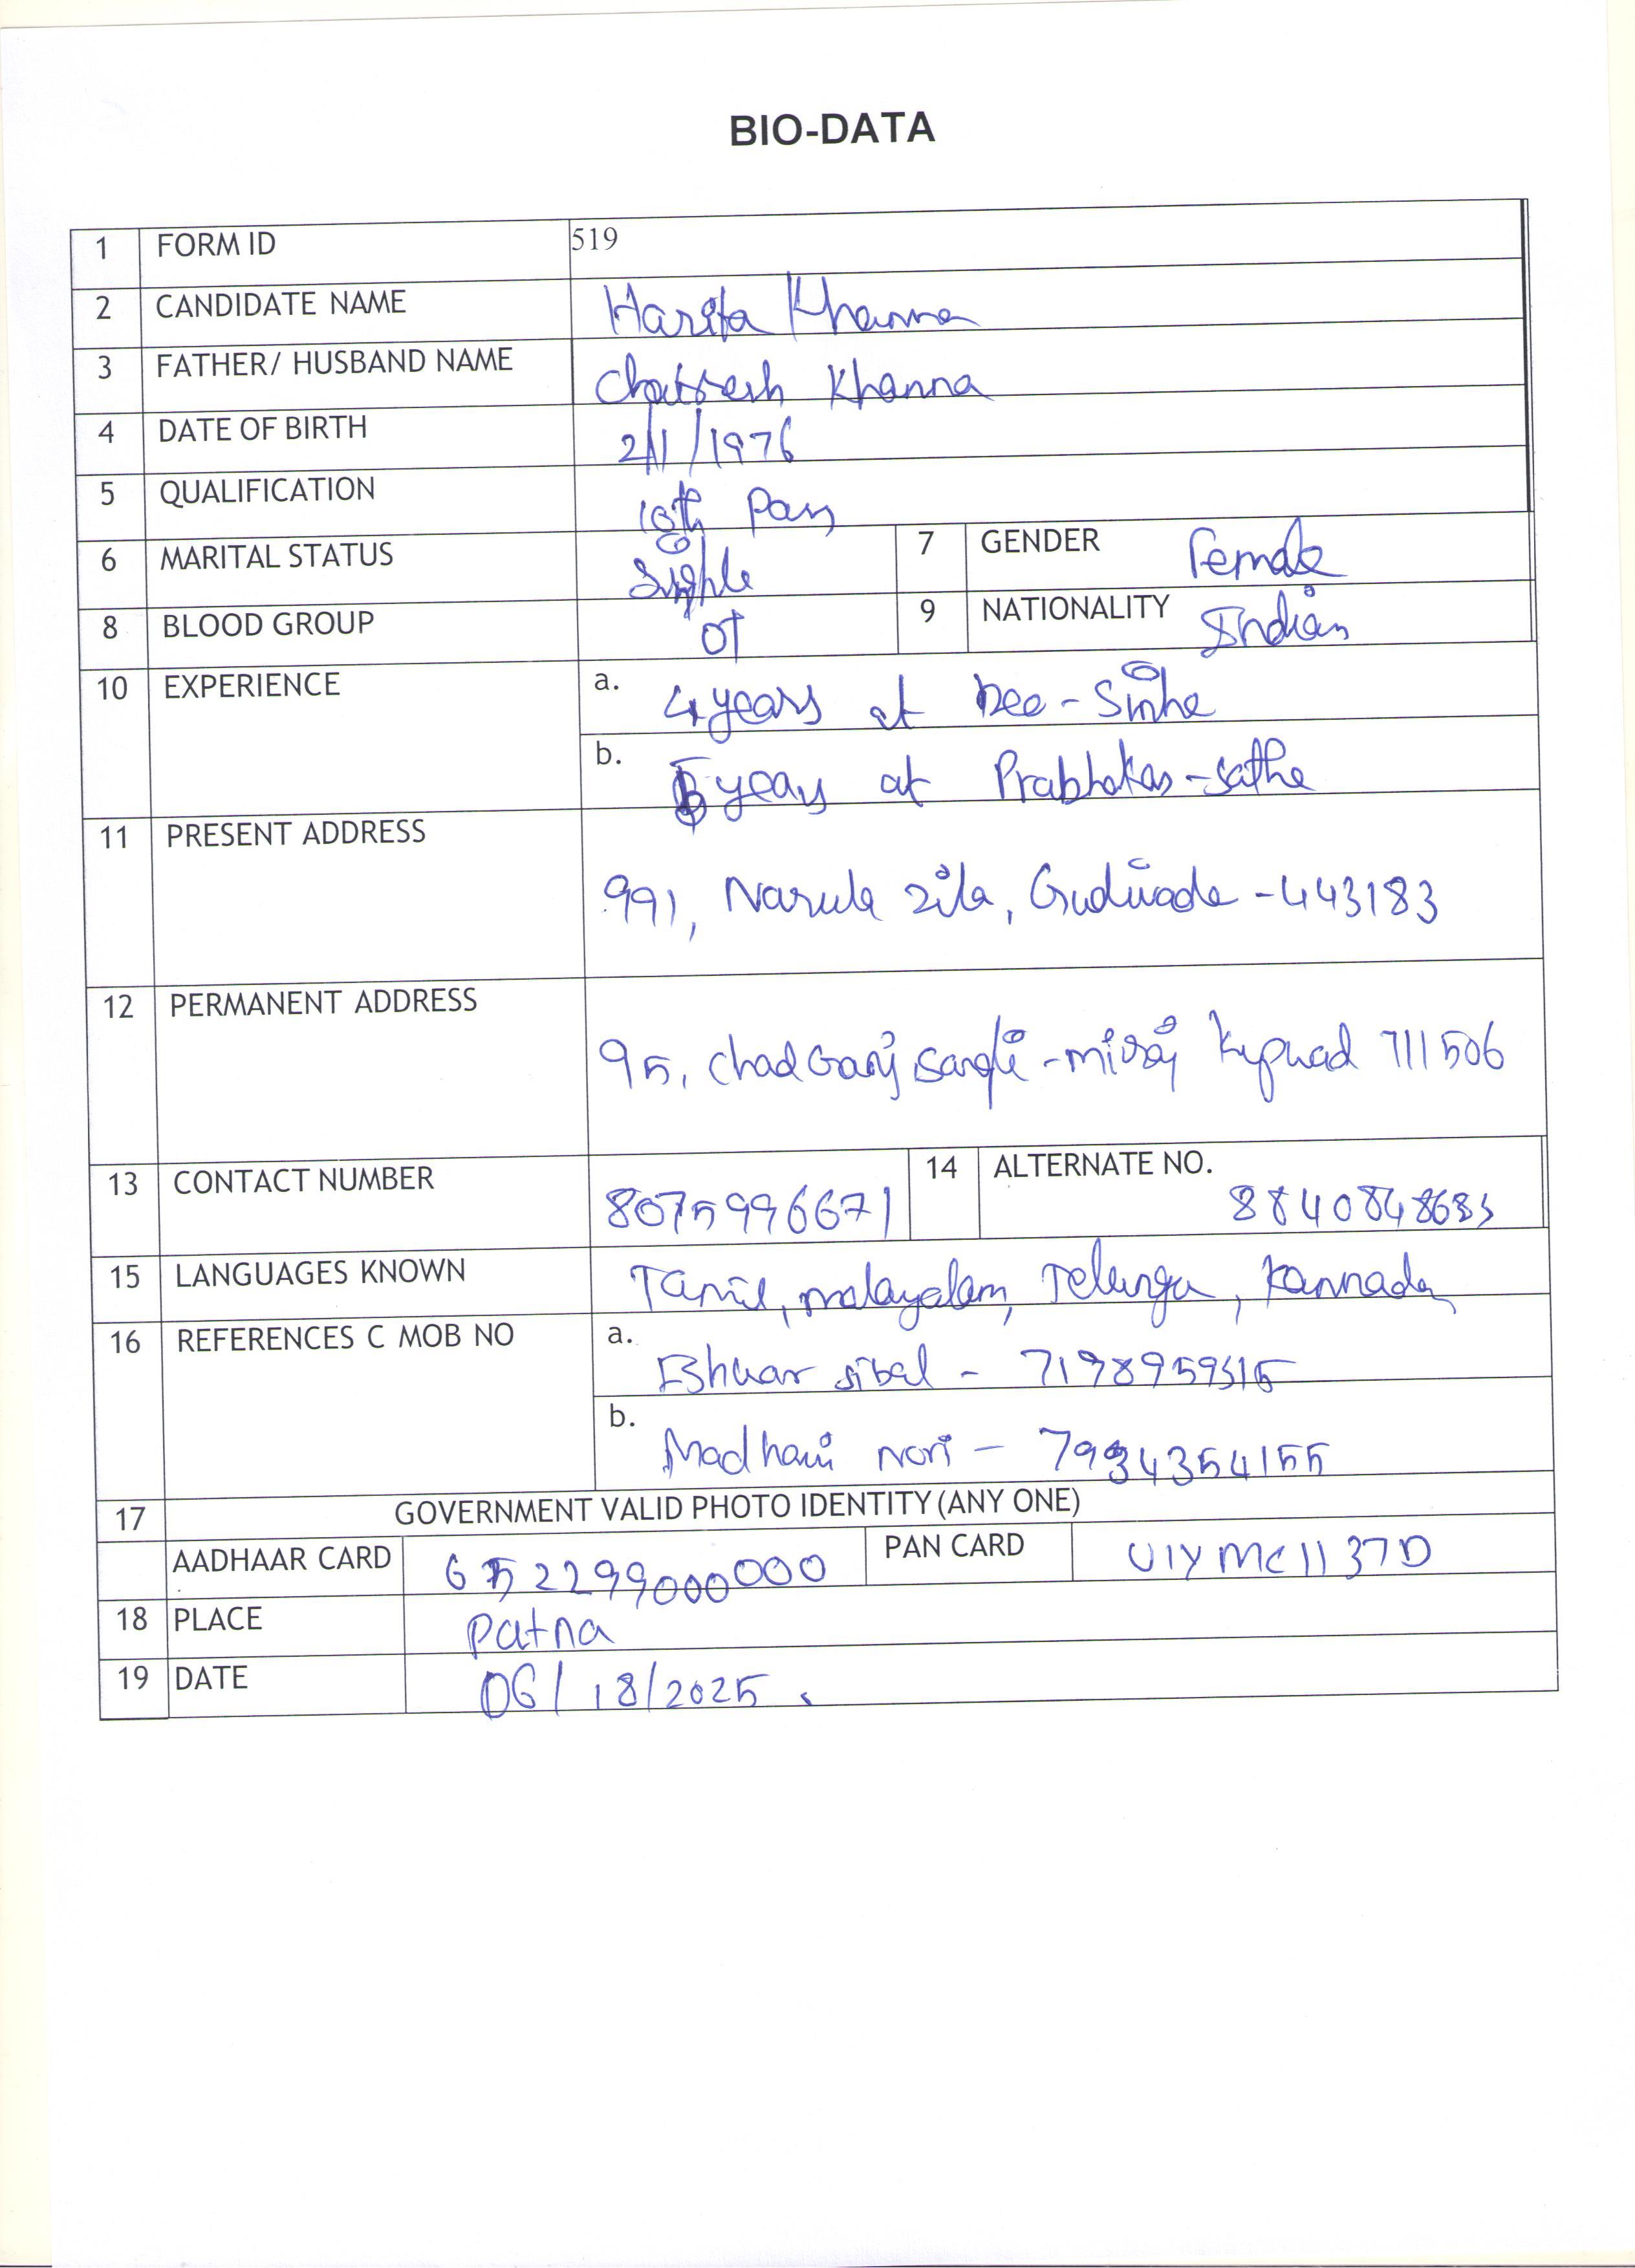 BIO-DATA
1 FORM ID 519
2 CANDIDATE NAME Harita Khanna
3 FATHER/ HUSBAND NAME Chatresh Khanna
4 DATE OF BIRTH 2/1/1976
5 QUALIFICATION 10th Pass
6 MARITAL STATUS Single 7 GENDER Female
8 BLOOD GROUP O+ 9 NATIONALITY Indian
10 EXPERIENCE a. 4 years at Dee-Sinha
b. 5 years at Prabhakar-Sathe
11 PRESENT ADDRESS
991, Narula Zila, Gudivada - 443183
12 PERMANENT ADDRESS
95, Chad Ganj Sangli-Miraj Kupwad 711506
13 CONTACT NUMBER 8075996671 14 ALTERNATE NO. 8840848683
15 LANGUAGES KNOWN Tamil, malayalam, Telungu, Kannada
16 REFERENCES C MOB NO a. Eshwar sibal - 7198959315
b. Madhavi Nori - 7934354155
17 GOVERNMENT VALID PHOTO IDENTITY (ANY ONE)
AADHAAR CARD 652299000000 PAN CARD UIYMC1137D
18 PLACE Patna
19 DATE 06/18/2025.